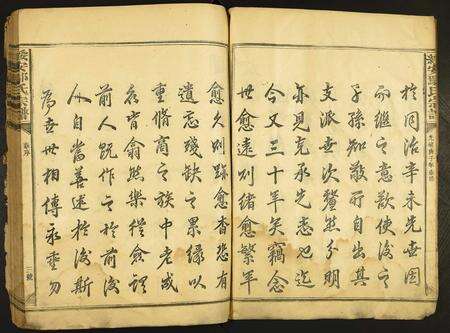 於同治辛未先世因
而継之意歟使後之
子孫知敬所自出其
支派世次釐然分明
亦見克承先志也迄
今又三十年矣竊念
世愈遠則緒愈繁年
愈久則跡愈香悲有
遺忘殘缺之累緣以
重脩商之族中老成
衆皆翕然樂從僉謂
前人既作之於前後
人自當善述於後斯
為世世相傳永垂勿
氏宗譜